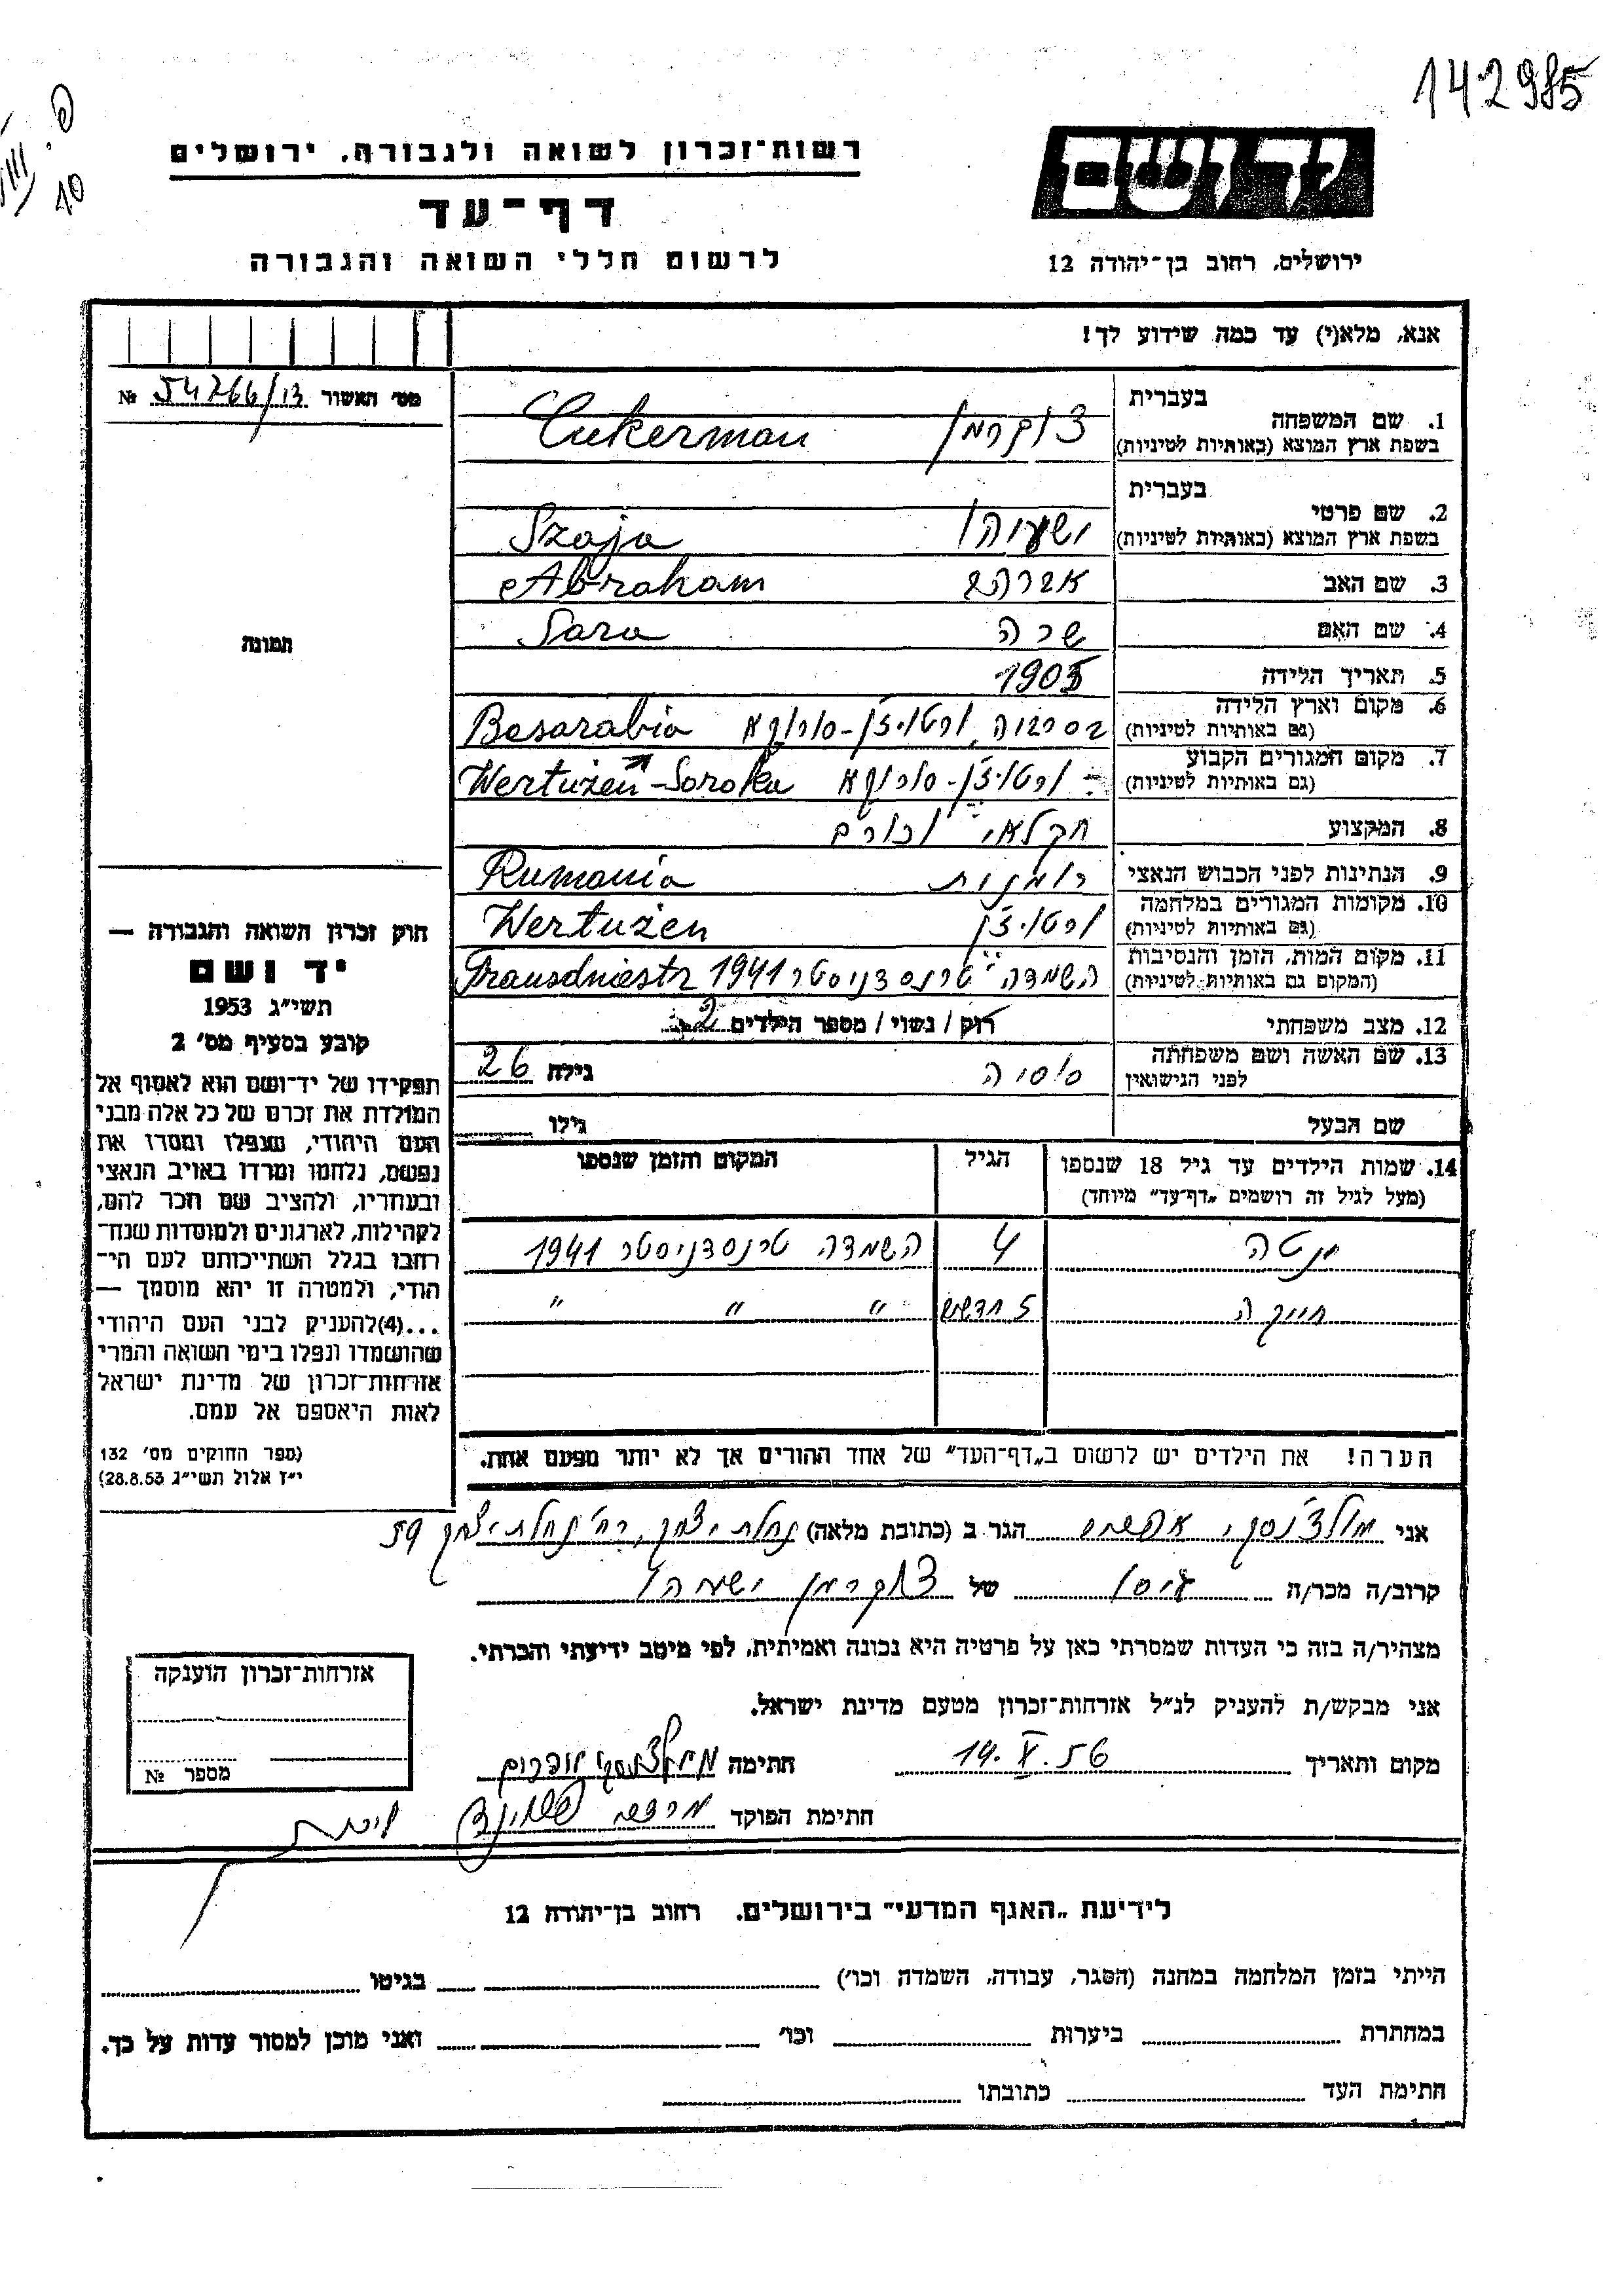 142985
10
רשות־זכרון לשואה ולגבורה. ירושלים
דף־עד
לרשום חללי השואה והגבורה
ידושם
ירושלים, רחוב בן־יהודה 12
אנא, מלא(י) עד כמה שידוע לך!
מס׳ האשור 54266/13 №
בעברית
1. שם המשפחה צוקרמן Cukerman
בשפת ארץ המוצא (באותיות לטיניות)
בעברית
2. שם פרטי ישעיהו Szaja
בשפת ארץ המוצא (באותיות לטיניות)
3. שם האב אברהם Abraham
4. שם האם שרה Sara
5. תאריך הלידה 1905
6. מקום וארץ הלידה בסרביה, ורטוז'ן-סורוקא Besarabia
(גם באותיות לטיניות)
7. מקום המגורים הקבוע ורטוז'ן-סורוקא Wertużen-Soroka
(גם באותיות לטיניות)
8. המקצוע חקלאי וכורם
9. הנתינות לפני הכבוש הנאצי רומנית Rumania
10. מקומות המגורים במלחמה ורטוז'ן Wertużen
(גם באותיות לטיניות)
11. מקום המות, הזמן והנסיבות השמדה טרנסדניסטר 1941 Transdniestr
(המקום גם באותיות לטיניות)
12. מצב משפחתי רוק / נשוי / מספר הילדים 2
13. שם האשה ושם משפחתה סוסיה גילה 26
לפני הנישואין
שם הבעל גילו
14. שמות הילדים עד גיל 18 שנספו הגיל המקום והזמן שנספו
(מעל לגיל זה רושמים „דף־עד״ מיוחד)
ינטה 4 השמדה טרנסדניסטר 1941
חייקה 5 חדשים " " "
הערה! את הילדים יש לרשום ב„דף־העד״ של אחד ההורים אך לא יותר מפעם אחת.
תמונה
חוק זכרון השואה והגבורה —
יד ושם
תשי״ג 1953
קובע בסעיף מס׳ 2
תפקידו של יד־ושם הוא לאסוף אל
המולדת את זכרם של כל אלה מבני
העם היהודי, שנפלו ומסרו את
נפשם, נלחמו ומרדו באויב הנאצי
ובעוזריו, ולהציב שם וזכר להם,
לקהילות, לארגונים ולמוסדות שנח־
רבו בגלל השתייכותם לעם הי־
הודי, ולמטרה זו יהא מוסמך —
...(4)להעניק לבני העם היהודי
שהושמדו ונפלו בימי השואה והמרי
אזרחות־זכרון של מדינת ישראל
לאות היאספם אל עמם.
(ספר החוקים מס׳ 132
י״ז אלול תשי״ג 28.8.53)
אני מולצ'נסקי, אפרים הגר ב (כתובת מלאה) נחלת יצחק, רח' נחלת יצחק 59
קרוב/ה מכר/ה גיסו של צוקרמן ישעיהו
מצהיר/ה בזה כי העדות שמסרתי כאן על פרטיה היא נכונה ואמיתית, לפי מיטב ידיעתי והכרתי.
אני מבקש/ת להעניק לנ״ל אזרחות־זכרון מטעם מדינת ישראל.
מקום ותאריך 14.X.56 חתימה
חתימת הפוקד
אזרחות־זכרון הוענקה
מספר №
לידיעת „האגף המדעי״ בירושלים. רחוב בן־יהודה 12
הייתי בזמן המלחמה במחנה (הסגר, עבודה, השמדה וכו׳) בגיטו
במחתרת ביערות וכו׳ ואני מוכן למסור עדות על כך.
חתימת העד כתובתו